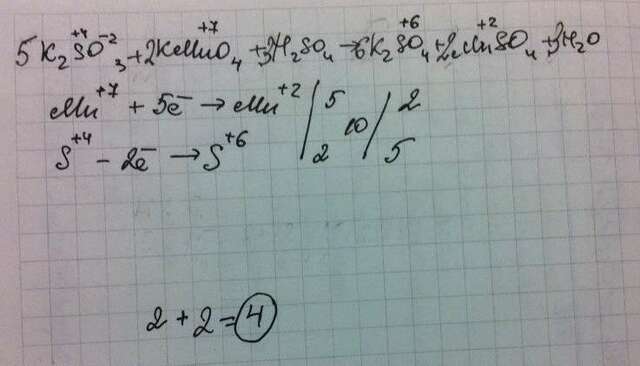 5K₂S⁺⁴O⁻²₃ + 2KMn⁺⁷O₄ + 3H₂SO₄ → 6K₂S⁺⁶O₄ + 2Mn⁺²SO₄ + 3H₂O
Mn⁺⁷ + 5e⁻ → Mn⁺² | 5 | 2
10
S⁺⁴ − 2e⁻ → S⁺⁶ | 2 | 5
2 + 2 = 4